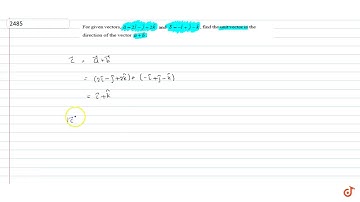 2485
For given vectors, a⃗ = 2î − ĵ + 2k̂ and b⃗ = −î + ĵ − k̂, find the unit vector in the
direction of the vector a⃗ + b⃗.
c⃗ = a⃗ + b⃗
= (2î − ĵ + 2k̂) + (−î + ĵ − k̂)
= î + k̂
|c⃗